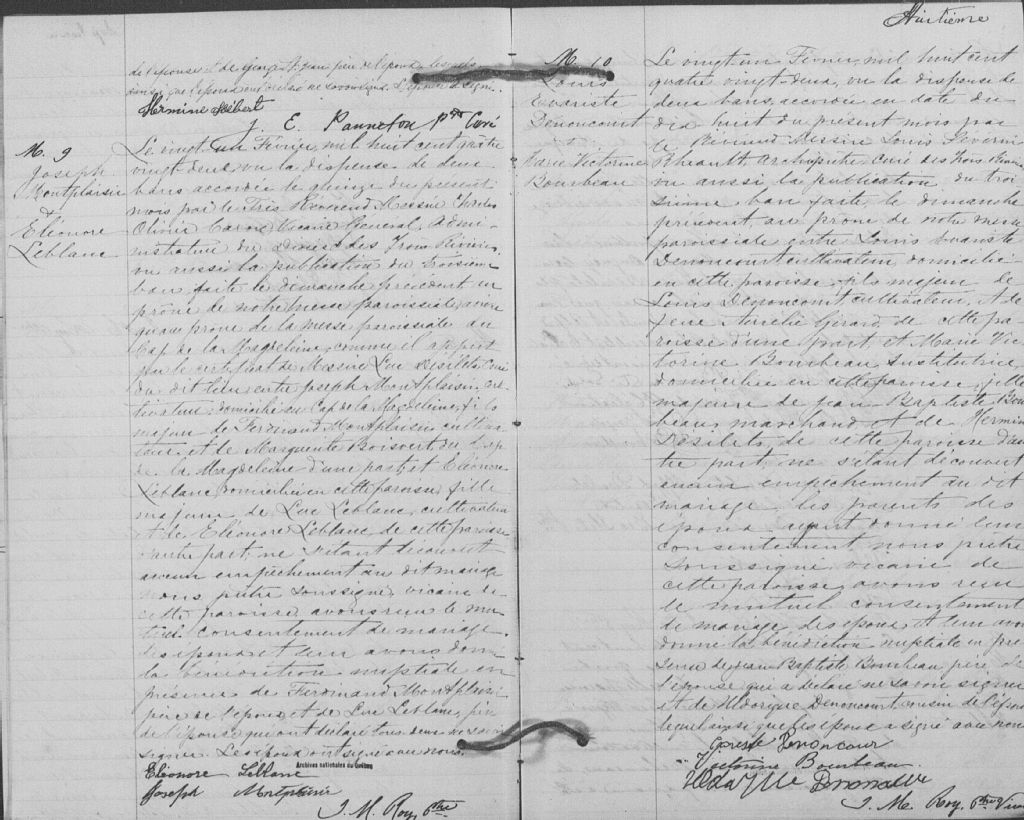 de l'épouse et de George
ainsi que l'époux ont déclaré ne savoir signer. L'épouse a signé.
Hermine Hébert
J. E. Panneton Ptre Curé
M. 9
Joseph
Montplaisir
&
Eléonore
Leblanc
Le vingt un Février mil huit cent quatre
vingt deux, vu la dispense de deux
bans accordée le quinze du présent
mois par le Très Révérend Messire Charles
Olivier Caron Vicaire Général, Admi-
nistrateur du Diocèse des Trois Rivières,
vu aussi la publication du troisième
ban faite le dimanche précédent au
prône de notre messe paroissiale, ainsi
qu'au prône de la messe paroissiale du
Cap de la Magdeleine, comme il appert
par le certificat de Messire Luc Desilets, Curé
du dit lieu entre Joseph Montplaisir, cul-
tivateur, domicilié au Cap de la Magdeleine, fils
majeur de Ferdinand Montplaisir cultiva-
teur, et de Marguerite Boisvert du Cap
de la Magdeleine d'une part, et Eléonore
Leblanc, domiciliée en cette paroisse, fille
majeure de Luc Leblanc, cultivateur
et de Eléonore Leblanc, de cette paroisse
d'autre part; ne s'étant découvert
aucun empêchement au dit mariage
nous prêtre soussigné, vicaire de
cette paroisse, avons reçu le mu-
tuel consentement de mariage
des époux et leur avons donné
la bénédiction nuptiale en
présence de Ferdinand Montplaisir
père de l'époux et de Luc Leblanc, père
de l'épouse qui ont déclaré tous deux ne savoir
signer. Les époux ont signé avec nous.
Archives nationales du Québec
Eléonore Leblanc
Joseph Montplaisir
J. M. Roy, Ptre
Huitième
M. 10
Louis
Evariste
Denoncourt
&
Marie Victorine
Bourbeau
Le vingt un Février, mil huit cent
quatre vingt-deux, vu la dispense de
deux bans, accordée en date du
dix huit du présent mois par
le Révérend Messire Louis Séverin
Rheault Archiprêtre Curé des Trois Rivières
vu aussi la publication du troi
sième ban faite, le dimanche
précédent au prône de notre messe
paroissiale entre Louis Evariste
Denoncourt cultivateur domicilié
en cette paroisse, fils majeur de
Louis Denoncourt cultivateur, et de
feue Aurélie Girard, de cette pa
roisse d'une part et Marie Vic
torine Bourbeau, institutrice,
domiciliée en cette paroisse, fille
majeure de Jean Baptiste Bour
beau, marchand et de Hermine
Désilets, de cette paroisse d'au
tre part; ne s'étant découvert
aucun empêchement au dit
mariage, les parents des
époux ayant donné leur
consentement nous prêtre
soussigné, vicaire de
cette paroisse, avons reçu
le mutuel consentement
de mariage des époux et leur avons
donné la bénédiction nuptiale en pré
sence de Jean Baptiste Bourbeau père de
l'épouse qui a déclaré ne savoir signer
et de Denoncourt cousin de l'époux
lequel ainsi que les époux a signé avec nous
Denoncour
Victorine Bourbeau
J. M. Roy, Ptre Vicaire